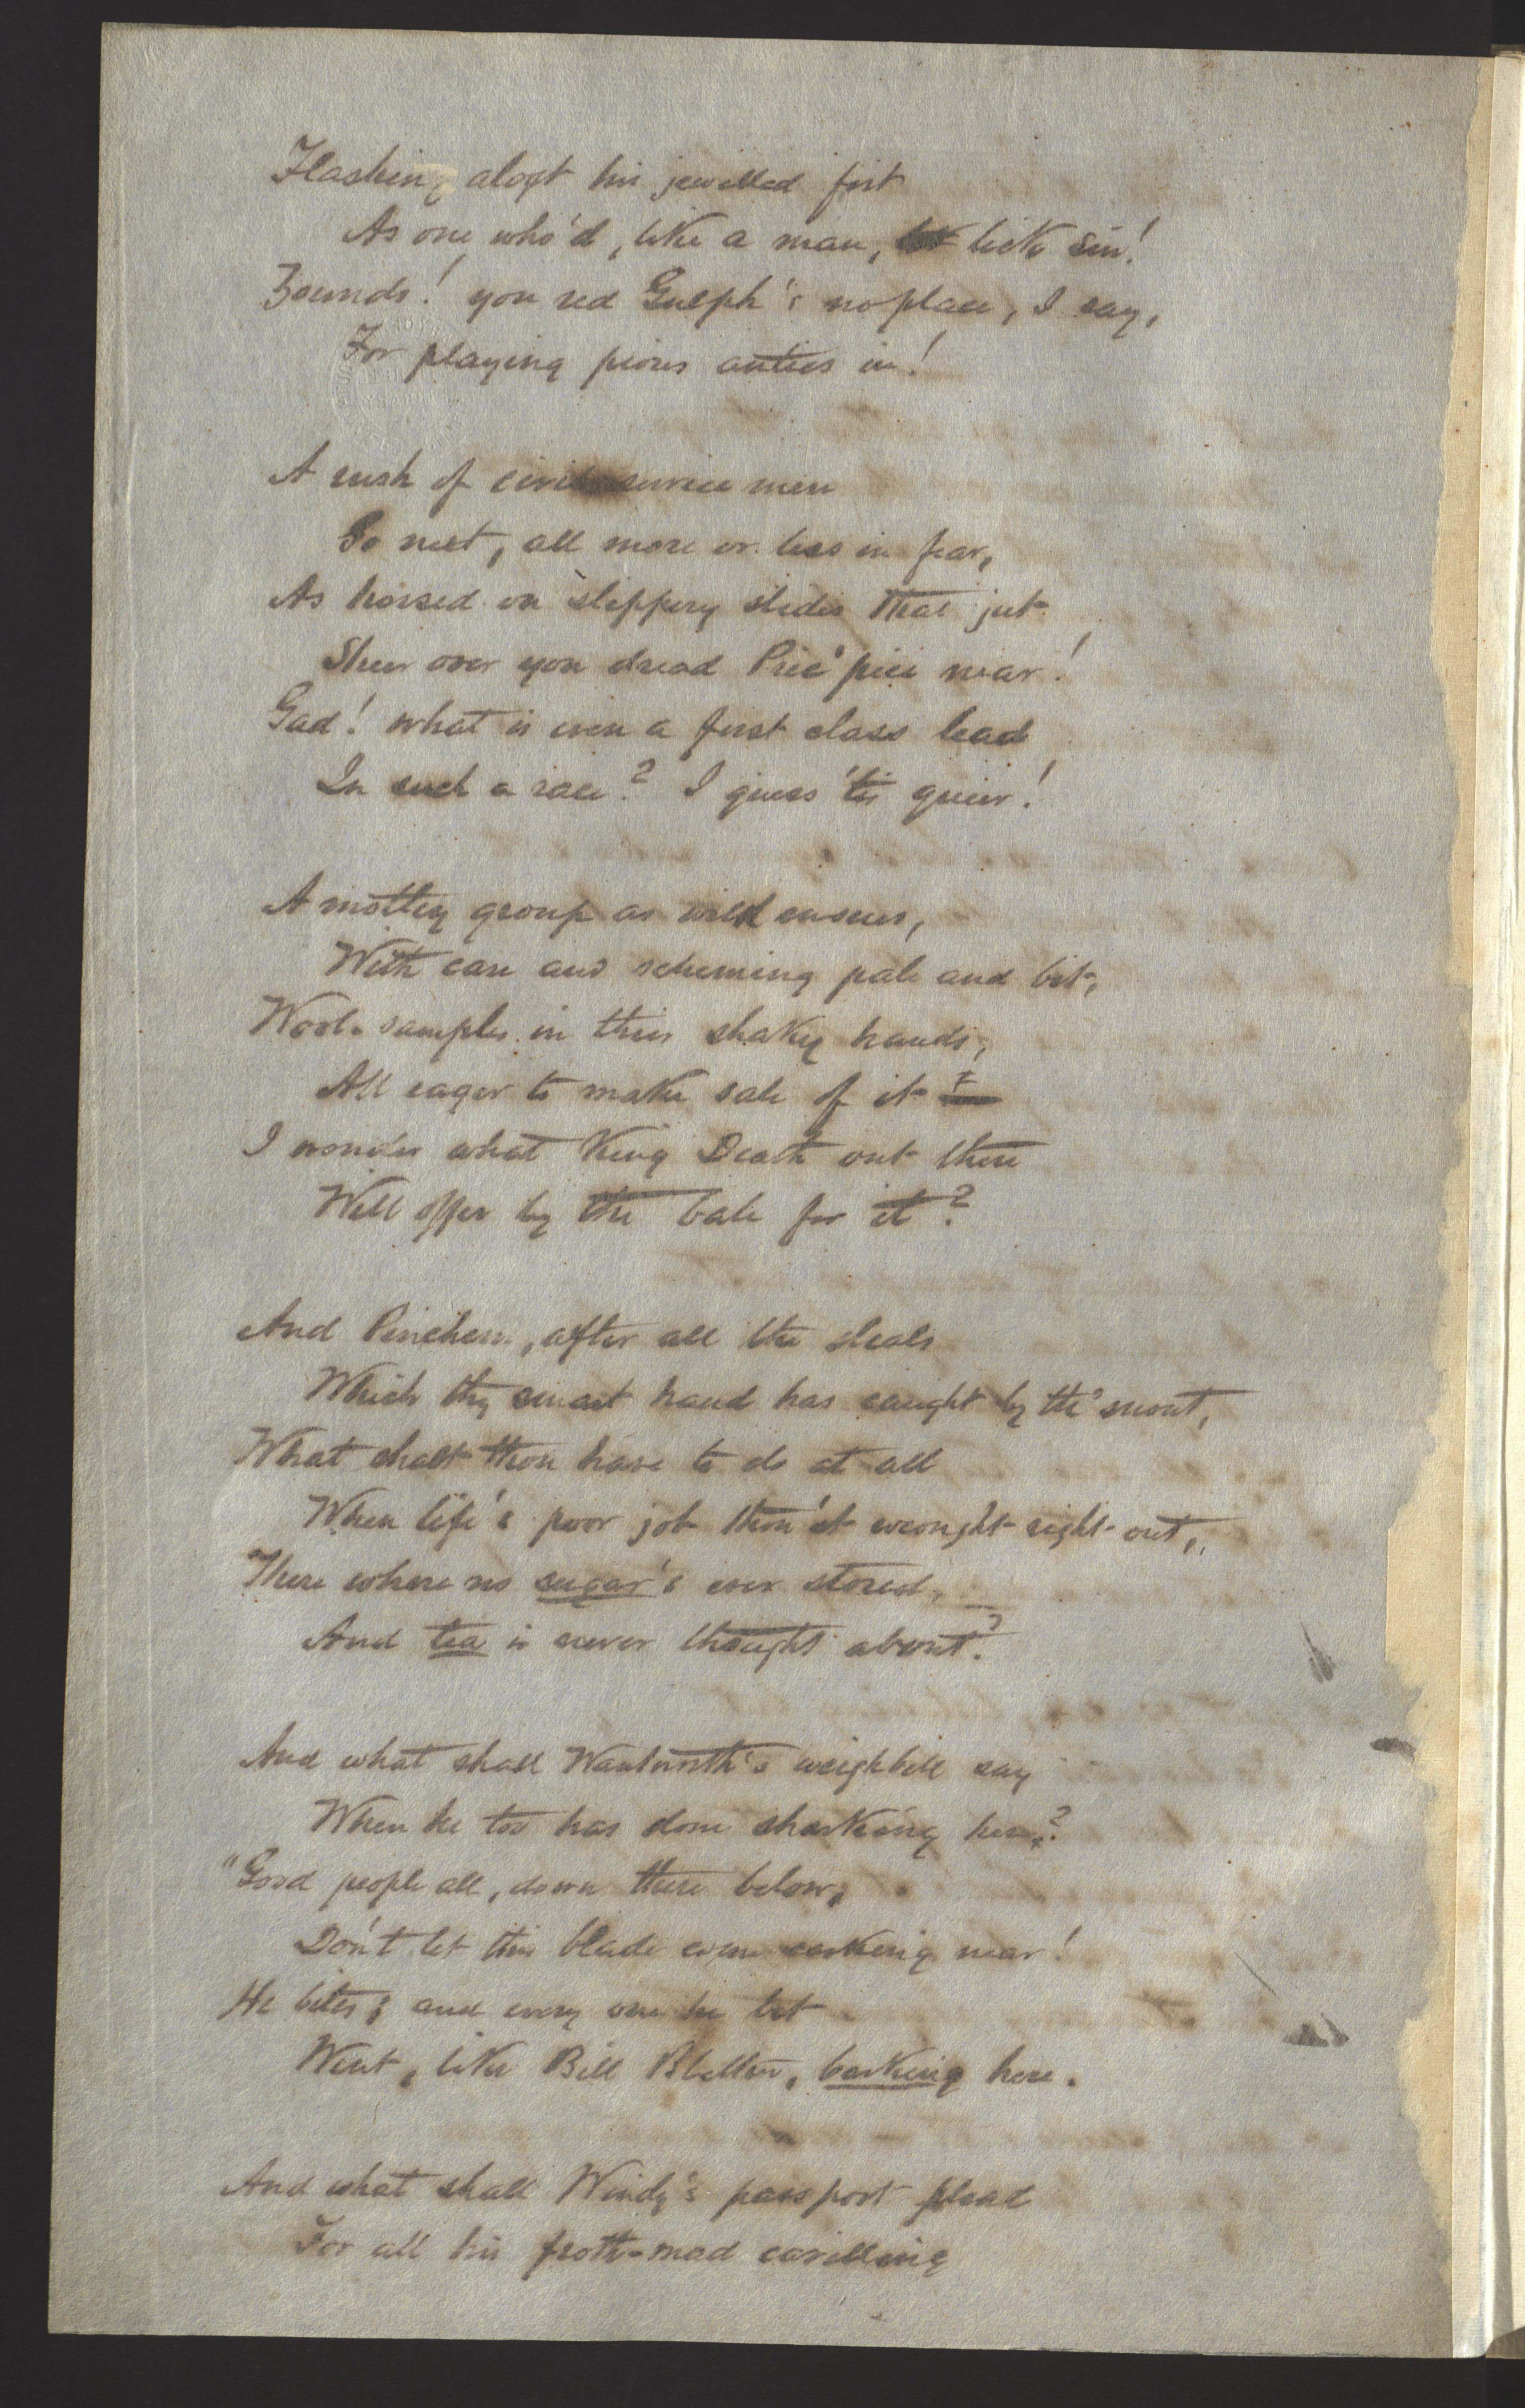 Flashing aloft his jewelled fist
As one who'd, like a man, lick sin!
Zounds! yon red Gulph's no place, I say,
For playing pious antics in!
A rush of civil service men
Go next, all more or less in fear,
As horsed on slippery slides that jut
Sheer over yon dread Prec'pice near!
Gad! what is even a first class lead
In such a race? I guess 'tis queer!
A motley group as wild ensues,
With care and scheming pale and bit,
Wool-samples in their shaky hands,
All eager to make sale of it
I wonder what King Death out there
Will offer by the bale for it?
And Pinchem, after all the deals
Which thy smart hand has caught by th' snout,
What shalt thou have to do at all
When life's poor job thou'st wrought right out,
There where no sugar's ever stored,
And tea is never thought about?
And what shall Wantworth's weighbill say
When he too has done sharking here?
"Good people all, down there below,
Don't let this blade come carking near!
He bites; and every one he bit
Went, like Bill Blatter, barking here.
And what shall Windy's passport plead
For all his froth-mad cavilling